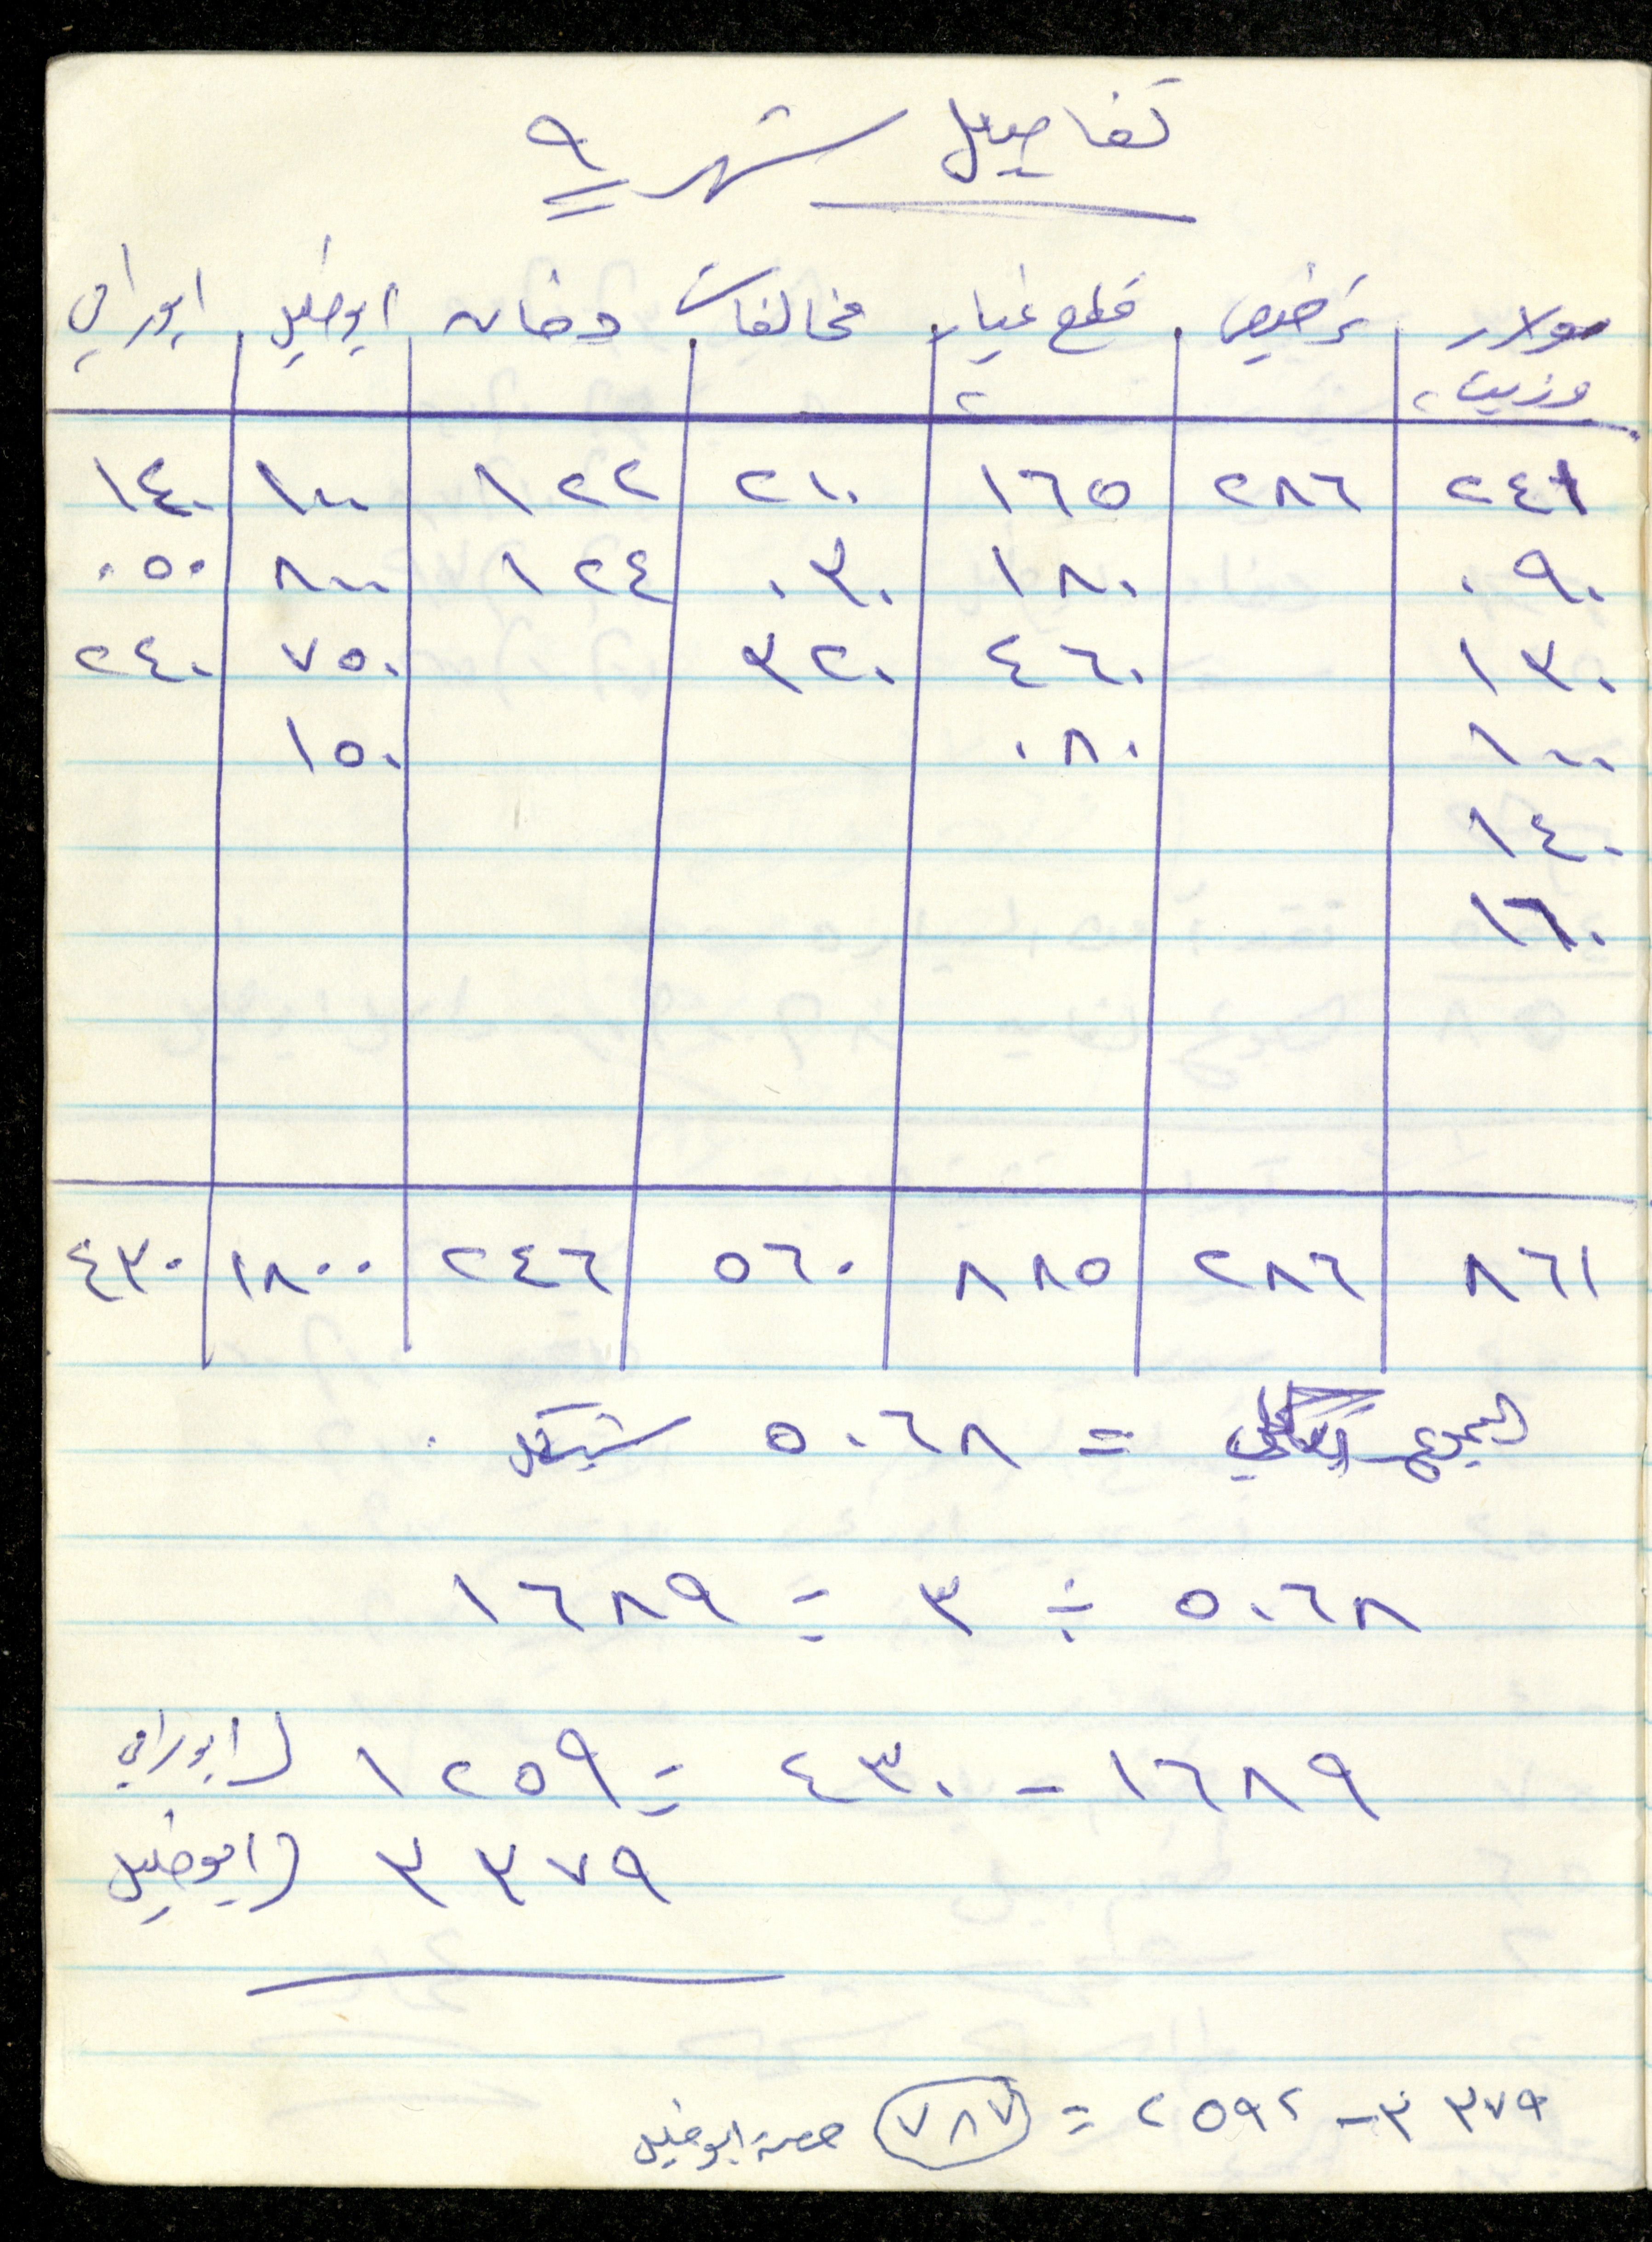 تفاصيل شهر ٩
سولار ترخيص قطع غيار مخالفات دخان ابو خليل ابو رامي
وزيت
٢٤١ ٢٨٦ ١٦٥ ٢١٠ ١٢٢ ١٠٠ ١٤٠
٠٩٠ ١٨٠ ٠٣٠ ١٢٤ ٨٠٠ ٠٥٠
١٣٠ ٤٦٠ ٣٢٠ ٧٥٠ ٢٤٠
١٠٠ ٠٨٠ ١٥٠
١٤٠
١٦٠
٨٦١ ٢٨٦ ٨٨٥ ٥٦٠ ٢٤٦ ١٨٠٠ ٤٣٠
المجموع الكلي = ٥٠٦٨ شيكل .
٥٠٦٨ ÷ ٣ = ١٦٨٩
١٦٨٩ - ٤٣٠ = ١٢٥٩ لـ ابو رامي
٣٣٧٩ لـ ابو خليل
٣٣٧٩ - ٢٥٩٢ = ٧٨٧ حصة ابو خليل